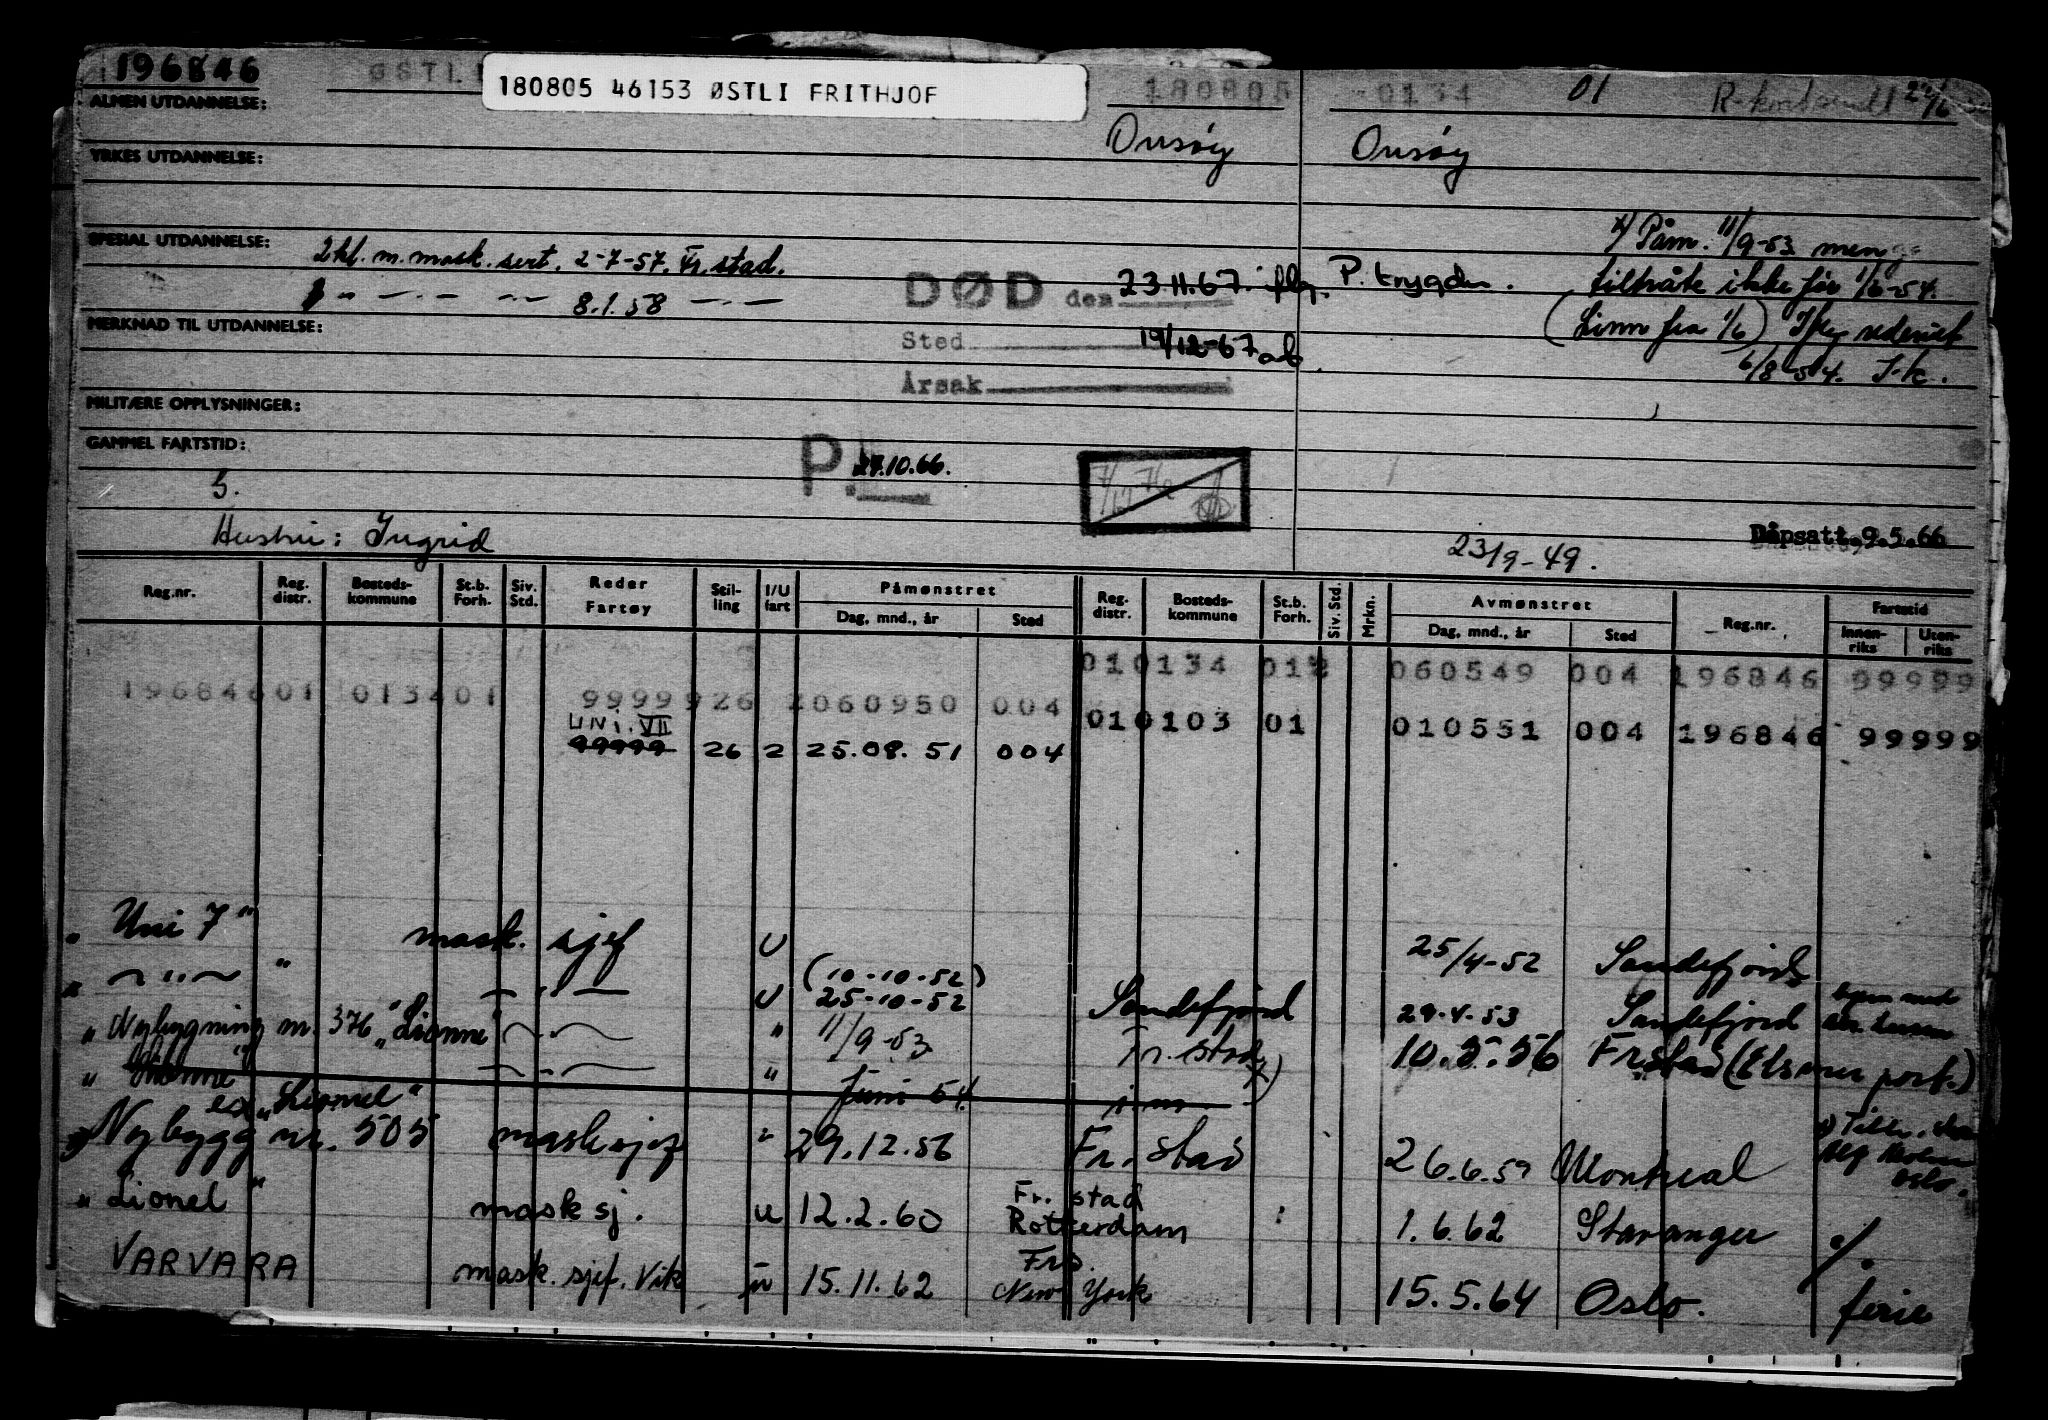 196846 ØSTLI 180805 46153 ØSTLI FRITHJOF 180805 0134 01
ALMEN UTDANNELSE:
Onsøy Onsøy
YRKES UTDANNELSE:
x) Påm. 11/9-53 men
SPESIAL UTDANNELSE: 2 kl. m. mask. sert. 2-7-57. Fr.stad.
DØD den 23.11.67. iflg. P. trygden. tiltråte ikke før 1/6-54.
8.1.58
(Linn fra 1/6) Iflg rederiet
MERKNAD TIL UTDANNELSE:
Sted 19/12-67 ab.
6/8-54. I.k.
Årsak
MILITÆRE OPPLYSNINGER:
GAMMEL FARTSTID:
P. 27.10.66.
5.
Hustru: Ingrid
23/9-49. Påpsatt 9.5.66
Reg.nr. Reg. distr. Bosteds-kommune St.b. Forh. Siv. Std. Reder Fartøy Stil-ling I/U fart Påmønstret Dag, mnd., år Sted Reg. distr. Bosteds-kommune St.b. Forh. Siv. Std. Mrkn. Avmønstret Dag, mnd., år Sted Reg.nr. Fartstid Innen-riks Uten-riks
010134 012 060549 004 196846 99999
196846 01 0134 01 99999 26 2 060950 004
UNI. VII
010103 01 010551 004 196846 99999
99999 26 2 25.08.51 004
"Uni 7" mask. sjef U 25/4-52 Sandefjord
" — " — " — " — U (10-10-52) 25-10-52 Sandefjord 29-4-53 Sandefjord
"Nybygning nr. 376 "Lionne" — " — " 11/9-53 Fr.stad x) 10.5.56 Frstad
" — " — " Juni 54
ex "Lionel"
Nybygg nr. 505 masksjef " 29.12.56 Fr.stad 26.6.59 Montreal
"Lionel" mask sj. u 12.2.60 Fr.stad Rotterdam 1.6.62 Stavanger
VARVARA mask. sjef. Vik u 15.11.62 Frs. New York 15.5.64 Oslo. ferie